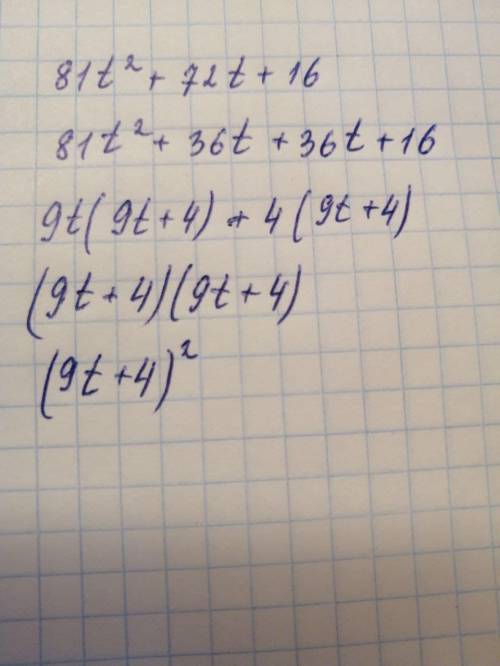 81t² + 72t + 16
81t² + 36t + 36t + 16
9t(9t+4) + 4(9t+4)
(9t+4)(9t+4)
(9t+4)²